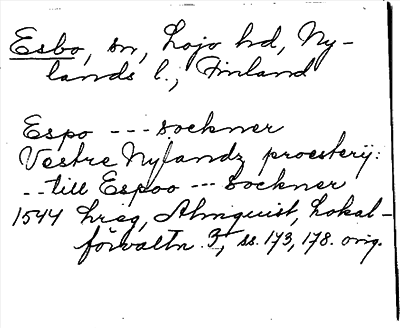 Esbo, sn, Lojo hd, Ny-
lands l., Finland
Espo --- sockner
Vestre Nylandz prοesterij:
-- till Espoo --- Sockner
1544 Lräg, Almquist, Lokal-
förvaltn. 3, ss. 173, 178. orig.